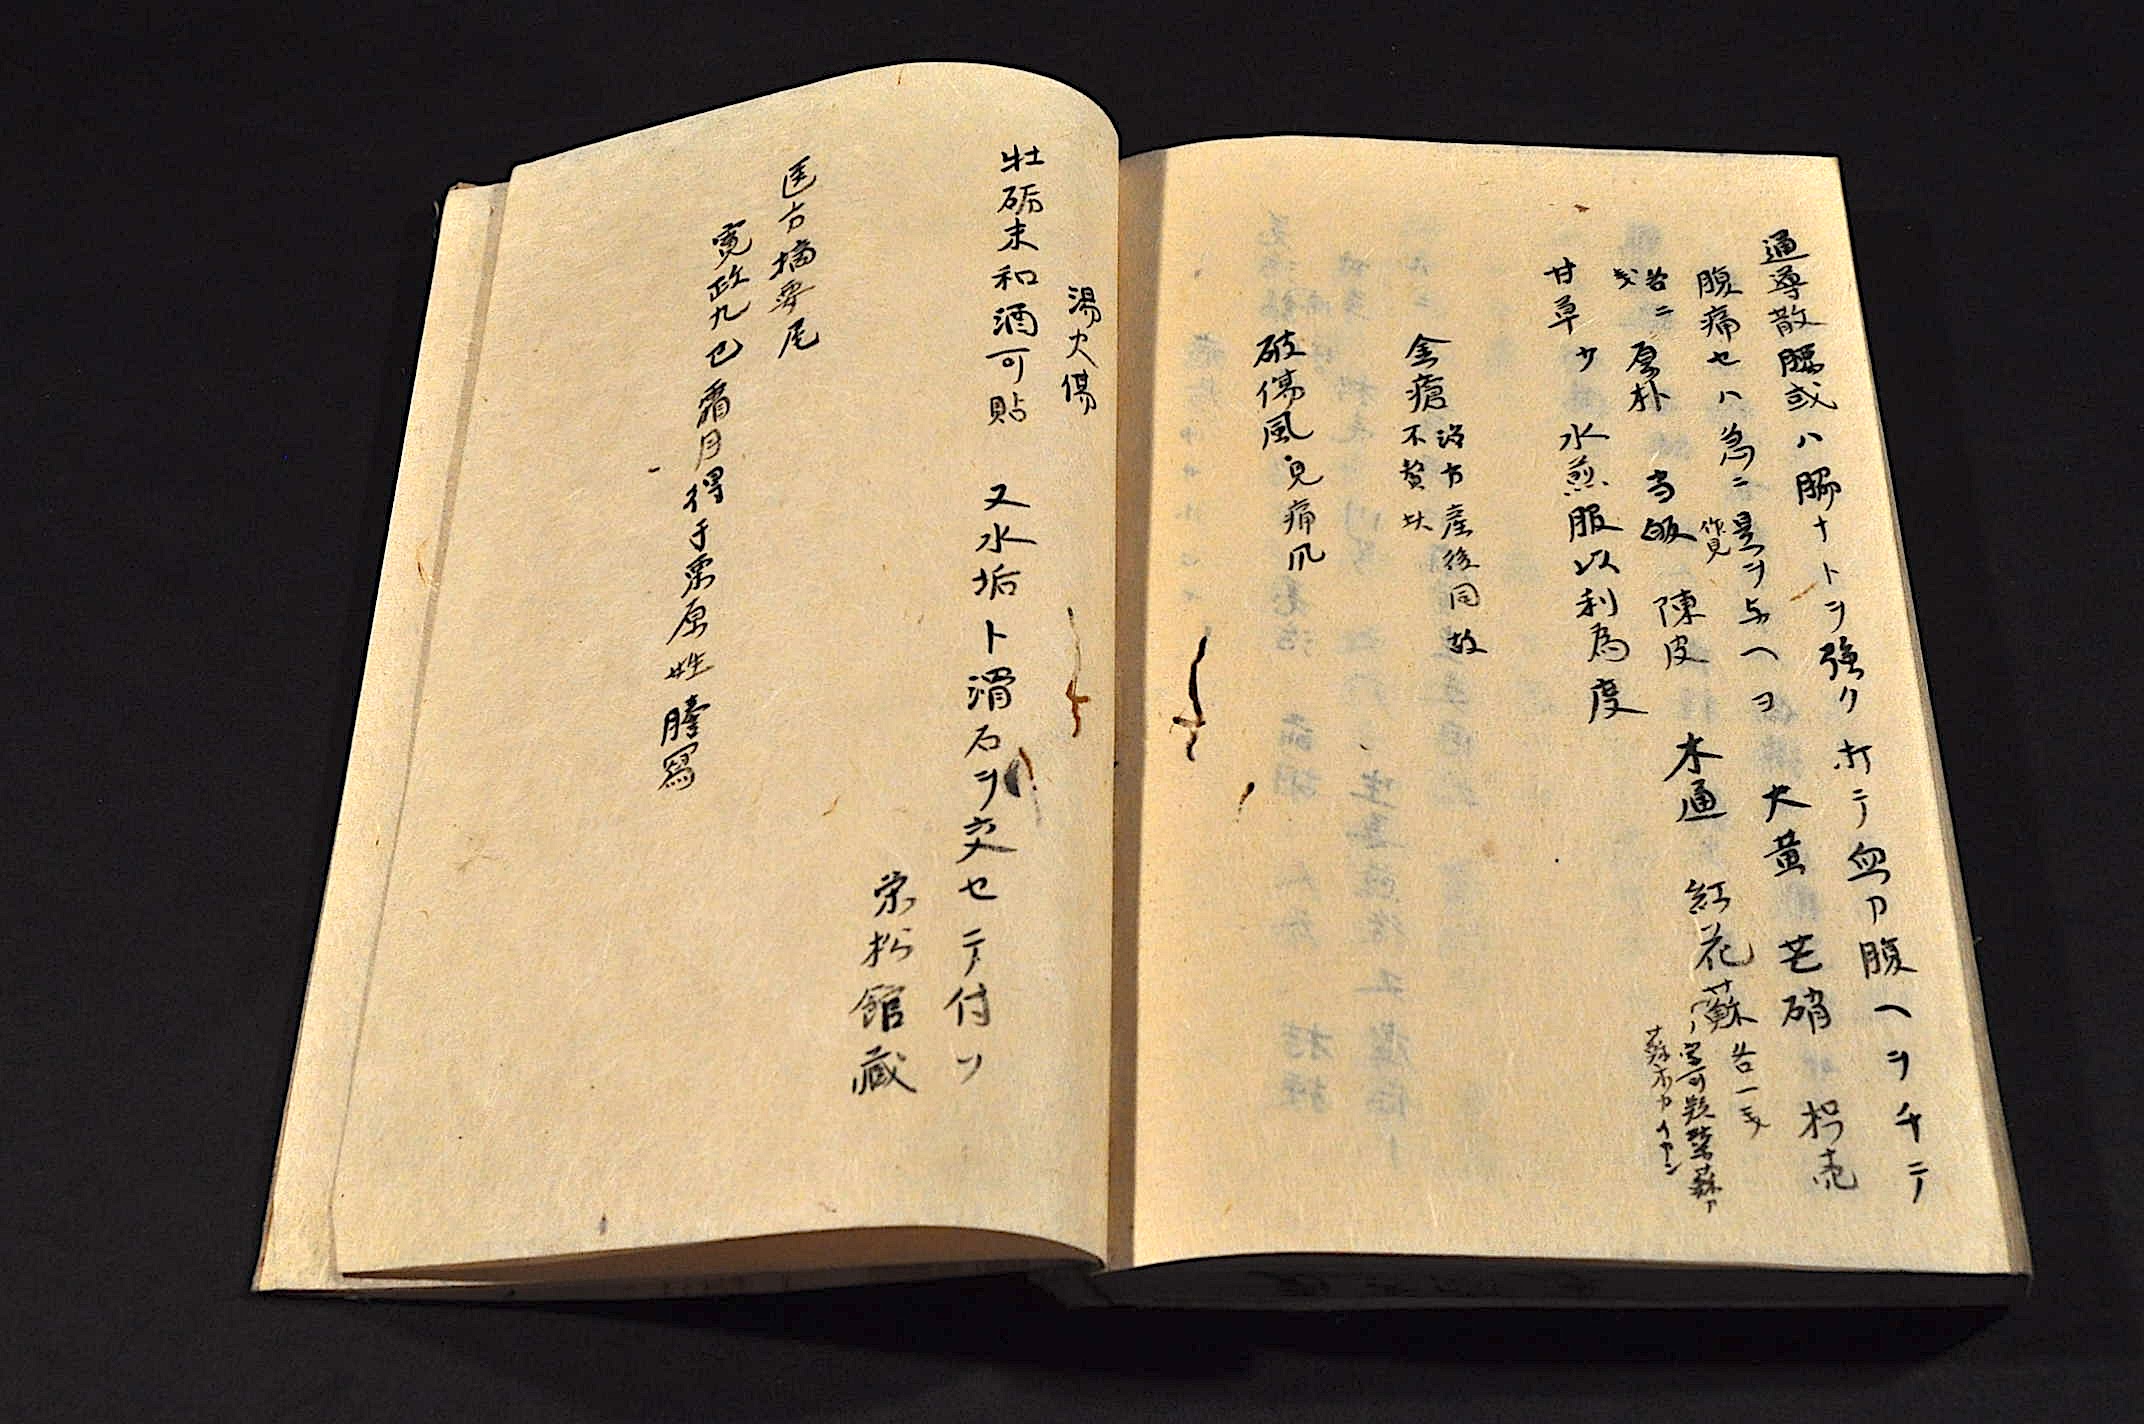 通導散腰或ハ脇ナトヲ強ク打テ血カ腹ヘヲチテ
腹痛セハ急ニ是ヲ与ヘヨ 大黄 芒硝 枳壳
作覚
各二
戔
厚朴 当皈 陳皮 木通 紅花 蘇
各一戔
蘇木カイカン
甘草少 水煎服以利為度
金瘡
治方産後同故
不贅
破傷風 見痛風
湯火傷
牡砺末和酒可貼 又水垢ト滑石ヲ交セテ付ツ
栄松館蔵
医方摘要尾
寛政九巳霜月得于栗原姓謄寫